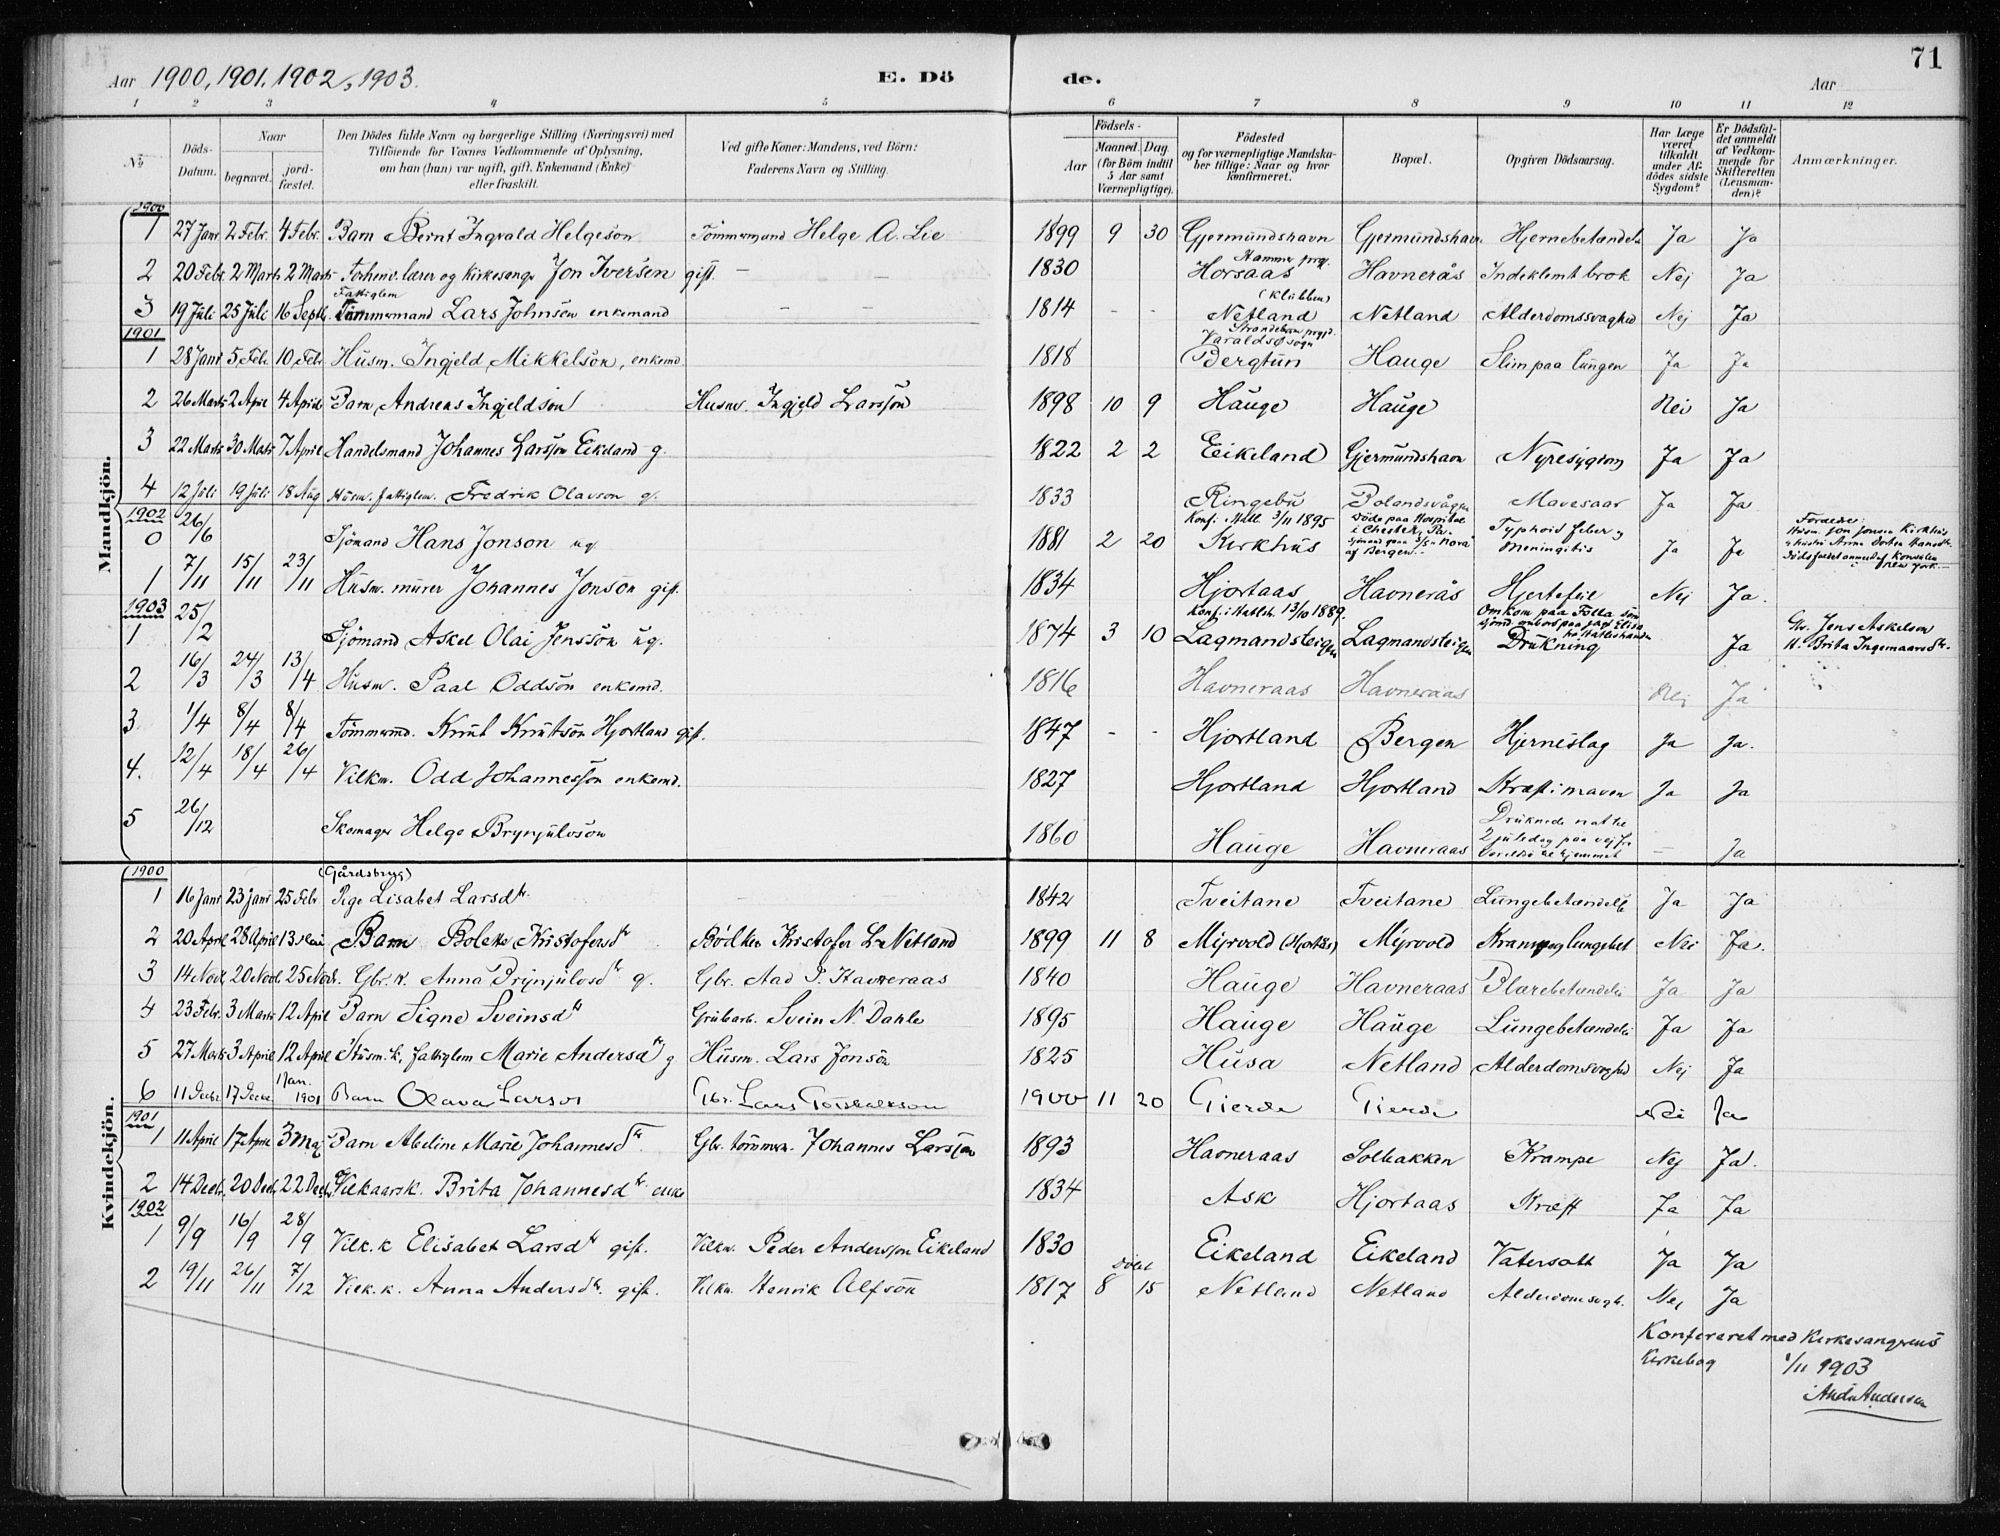 71
Aar 1900, 1901, 1902, 1903. E. Dö de. Aar
1 2 3 4 5 6 7 8 9 10 11 12
No. Döds-Datum. Naar begravet. jordfæstet. Den Dödes fulde Navn og borgerlige Stilling (Næringsvei) med Tilföiende for Voxnes Vedkommende af Oplysning, om han (hun) var ugift, gift, Enkemand (Enke) eller fraskilt. Ved gifte Koner: Mandens, ved Börn: Faderens Navn og Stilling. Födsels- Aar Maaned. Dag. (for Börn indtil 5 Aar samt Værnepligtige). Födested og for værnepligtige Mandskaber tillige: Naar og hvor konfirmeret. Bopæl. Opgiven Dödsaarsag. Har Læge været tilkaldt under Afdödes sidste Sygdom? Er Dödsfaldet anmeldt af Vedkommende for Skifteretten (Lensmanden)? Anmærkninger.
Mandkjön.
1900
1 27 Janr 2 Febr. 4 Febr. Barn Bernt Ingvald Helgeson Tömmermand Helge A. Lie 1899 9 30 Gjermundshavn Gjermundshavn Hjernebetændelse Ja Ja
2 20 Febr. 2 Marts 2 Marts Forhenv. lærer og Kirkesanger Jon Iversen gift. — — 1830 Hammer prgj. Horsaas Havnerås Indeklemt brok Nej Ja
3 19 Juli 25 Juli 16 Septb. Fattiglem Tömmermand Lars Johnsen enkemand — — 1814 - - (Klubben) Netland Netland Alderdomssvaghed Nej Ja
1901
1 28 Janr 5 Feb. 10 Feb. Husm. Ingjeld Mikkelson, enkemd. 1818 Strandebarm prgjd. Varaldsö sogn Bergtun Hauge Slim paa lungen Ja Ja
2 26 Marts 2 April 4 April Barn Andreas Ingjeldson Husm. Ingjeld Larsson 1898 10 9 Hauge Hauge Nei Ja
3 22 Marts 30 Marts 7 April Handelsmand Johannes Larsson Eikeland g. 1822 2 2 Eikeland Gjermundshavn Nyresygdom Ja Ja
4 12 Juli 19 Juli 18 Aug Husm. fattiglem. Fredrik Olavson g. 1833 Ringebu Bolandsvågen Mavesaar Ja Ja
1902
0 26/6 Sjömand Hans Jonson ug. 1881 2 20 Konf. i Hatl. 3/11 1895 Kirkhus Döde paa Hospital i Chester, Pa. Sjömand paa S/S Nora af Bergen. Typhoid feber og Meningitis Ja Ja Forældre: Husm. Jon Jonson Kirkhus og hustru Anna Dortea Hansdtr. Dödsfaldet anmeldt af Konsulen i New York.
1 7/11 15/11 23/11 Husm. murer Johannes Jonson gift. 1834 Hjortaas Havnerås Hjertefeil Nej Ja.
1903
1 25/2 Sjömand Askel Olai Jensson ug. 1874 3 10 Konf. i Hatlstr. 13/10 1889. Lagmandsteigen Lagmandsteigen Omkom paa Folla som sjömd. ombord paa jagt Elisa Drukning Ja Gbr. Jens Askelson H. Brita Ingemaarsdtr.
2 16/3 24/3 13/4 Husm. Paal Oddson enkemd. 1816 Havneraas Havneraas Nej Ja
3 1/4 8/4 8/4 Tömmermd. Knut Knutson Hjortland gift. 1847 - - Hjortland Bergen Hjerneslag Ja Ja.
4. 12/4 18/4 26/4 Vilkm. Odd Johannesson enkemd. 1827 Hjortland Hjortland Kræft i maven Ja Ja
5 26/12 Skomager Helge Brynjulvson 1860 Hauge Havneraas Druknede natte 2 juledag paa vej fra Varaldsö til hjemmet — Ja
Kvindekjön.
1900
1 16 Janr 23 Janr 25 Febr. (Gårdsbrug) Pige Lisabet Larsdtr. 1842 Tveitane Tveitane Lungebetændelse Ja Ja
2 20 April 28 April 13 Mai Barn Bolette Kristofersdtr Bödker Kristofer L. Netland 1899 11 8 Myrvold (Hjortås) Myrvold Krampe og lungebet Nei Ja.
3 14 Novb. 20 Novb. 25 Novb. Gbr. k. Anna Brynjulvsdtr g. Gbr. Aad P. Havneraas 1840 Hauge Havneraas Blærebetændelse Ja Ja
4 23 Febr. 3 Marts 12 April Barn Signe Sveinsdtr Grubearb. Svein N. Dahle 1895 Hauge Hauge Lungebetændelse Ja Ja
5 27 Marts 3 April 12 April Husm. k. fattiglem Marie Andersdtr g Husm. Lars Jonson 1825 Husa Netland Alderdomsvaghed Nej Ja
6 11 Decbr. 17 Decbr. Jan. 1901 Barn Olava Larsdtr Gbr. Lars Torkalkson 1900 11 20 Gierde Gierde Nei Ja
1901
1 11 April 17 April 3 Maj Barn Abeline Marie Johannesdtr. Gbr. tömmerm. Johannes Larsson 1893 Havneraas Solbakken Krampe Nej Ja.
2 14 Decb. 20 Decb. 22 Decb. Vilkaarsk. Brita Johannesdtr. enke 1834 Ask Hjortaas Kræft Ja Ja
1902
1 9/9 16/9 28/9 Vilk. k Elisabet Larsdtr gift. Vilkm. Peder Andersson Eikeland 1830 Eikeland Eikeland Vatersott Ja Ja
2 19/11 26/11 7/12 Vilk. k. Anna Andersdtr. gift. Vilkm. Henrik Alfson 1817 döbt 8 15 Netland Netland Alderdomsvagh. Nej Ja
Konfereret med Kirkesangerens
Kirkebog 1/11 1903
Anders Andersen